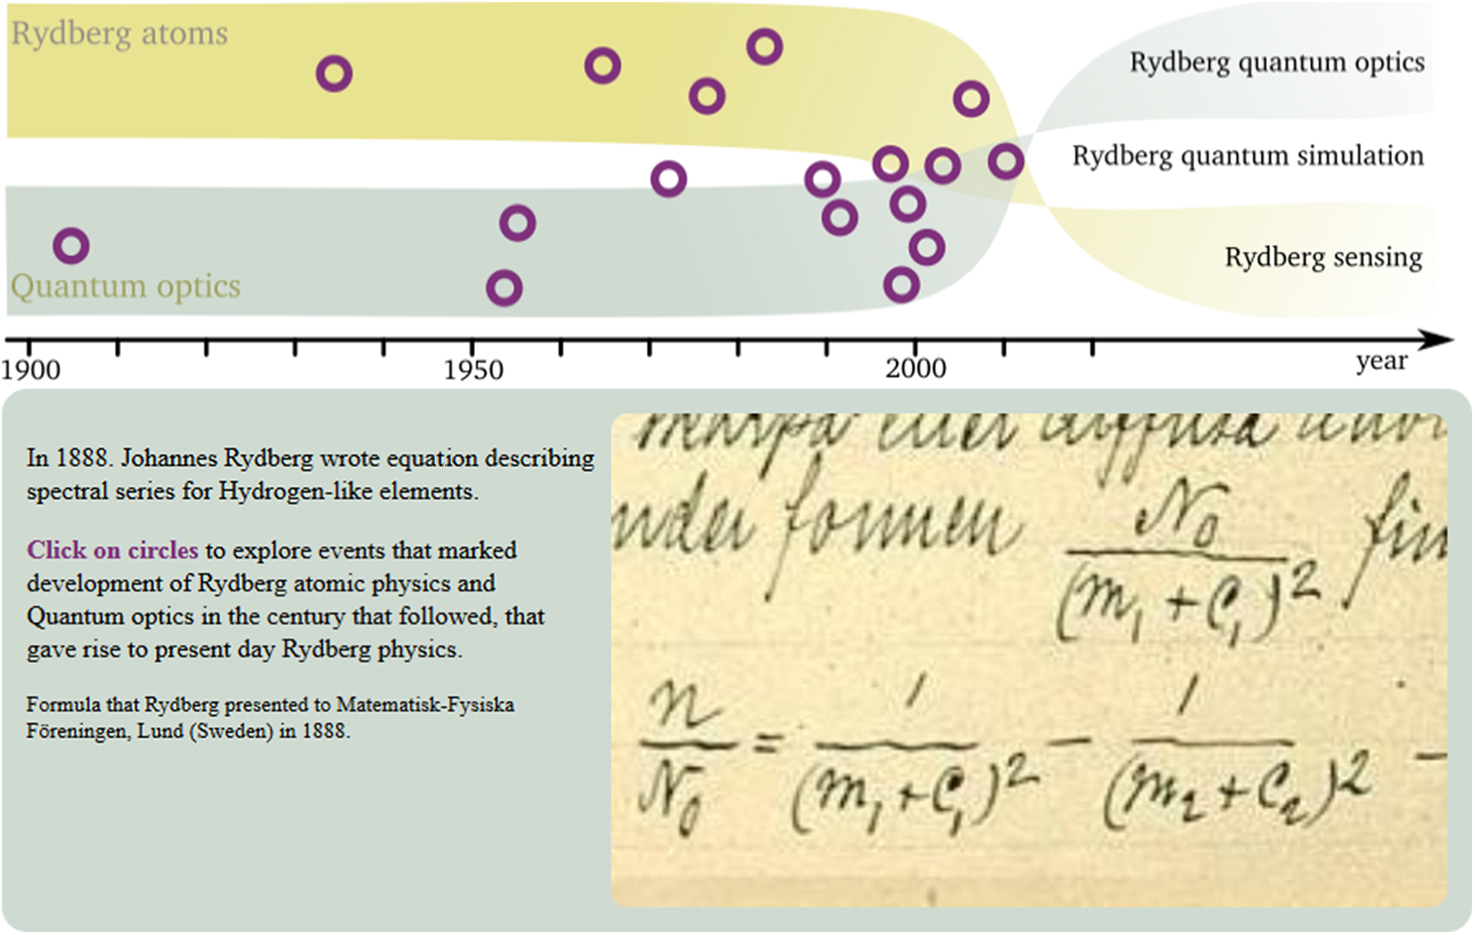 Rydberg atoms
Rydberg quantum optics
Rydberg quantum simulation
Rydberg sensing
Quantum optics
1900
1950
2000
year
In 1888. Johannes Rydberg wrote equation describing
spectral series for Hydrogen-like elements.
Click on circles to explore events that marked
development of Rydberg atomic physics and
Quantum optics in the century that followed, that
gave rise to present day Rydberg physics.
Formula that Rydberg presented to Matematisk-Fysiska
Föreningen, Lund (Sweden) in 1888.
eller diffusa
formen N₀/(m₁ + c₁)²
n/N₀ = 1/(m₁ + c₁)² − 1/(m₂ + c₂)² −